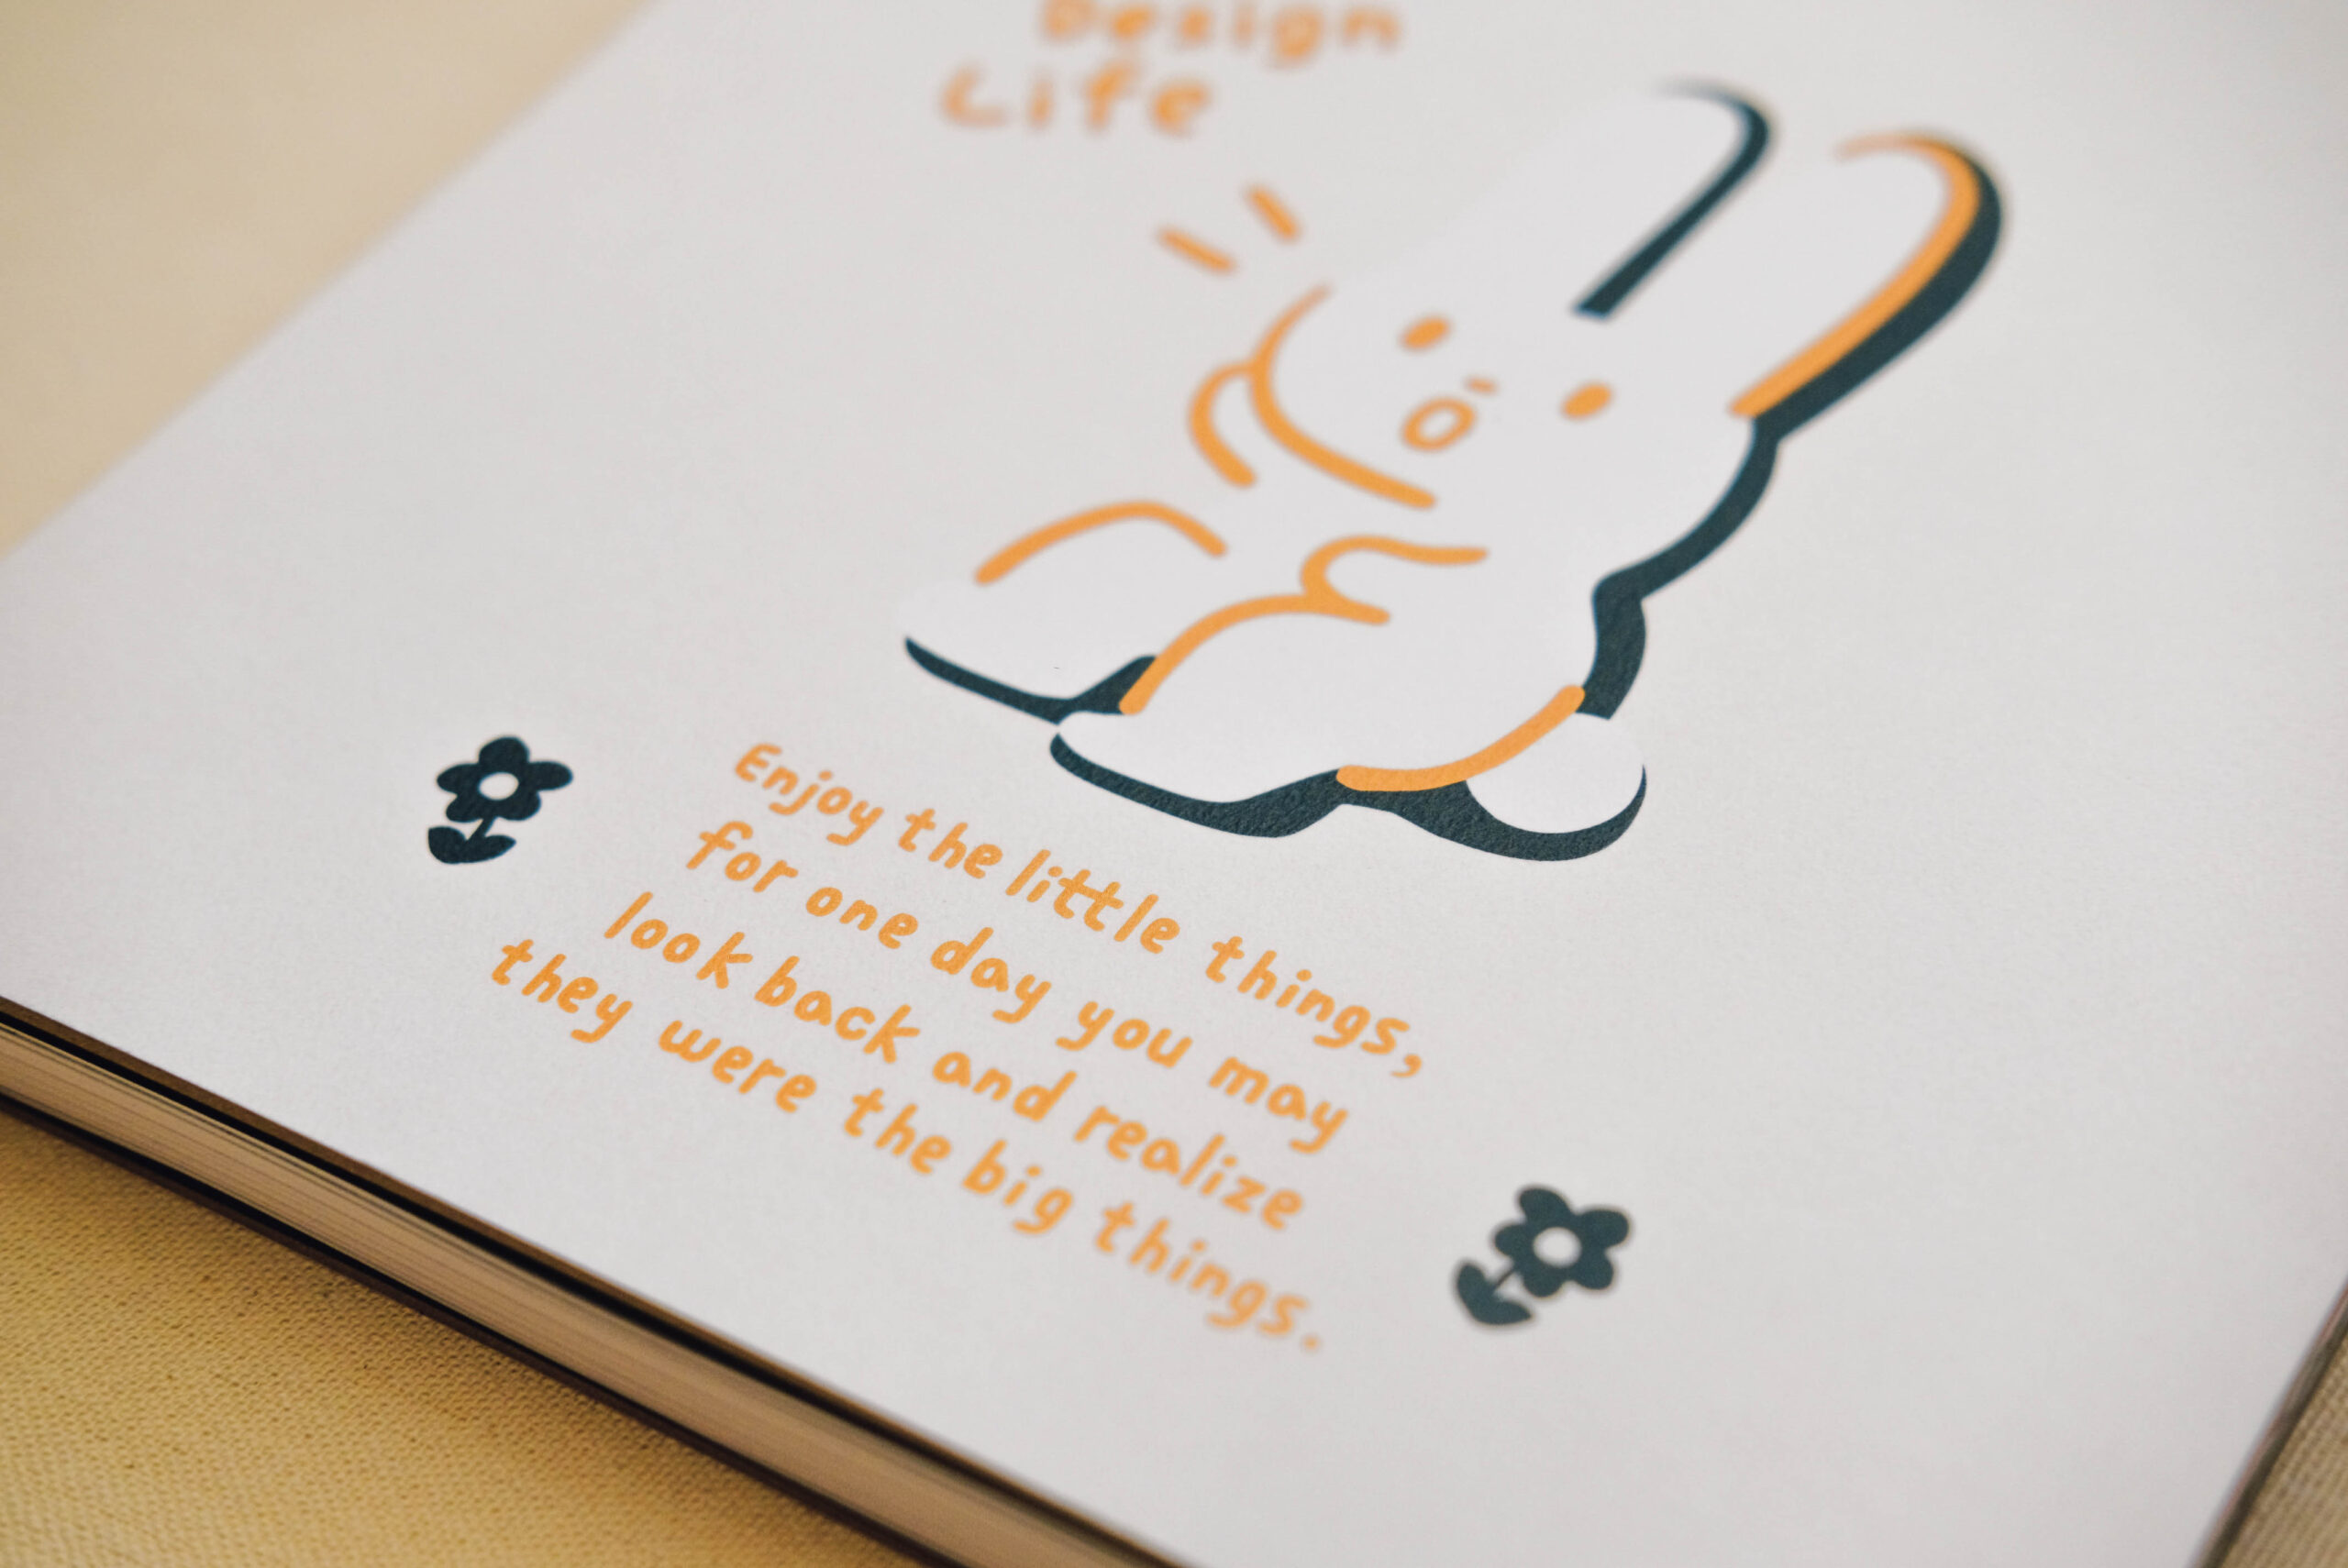 Design
Life
Enjoy the little things,
for one day you may
look back and realize
they were the big things.